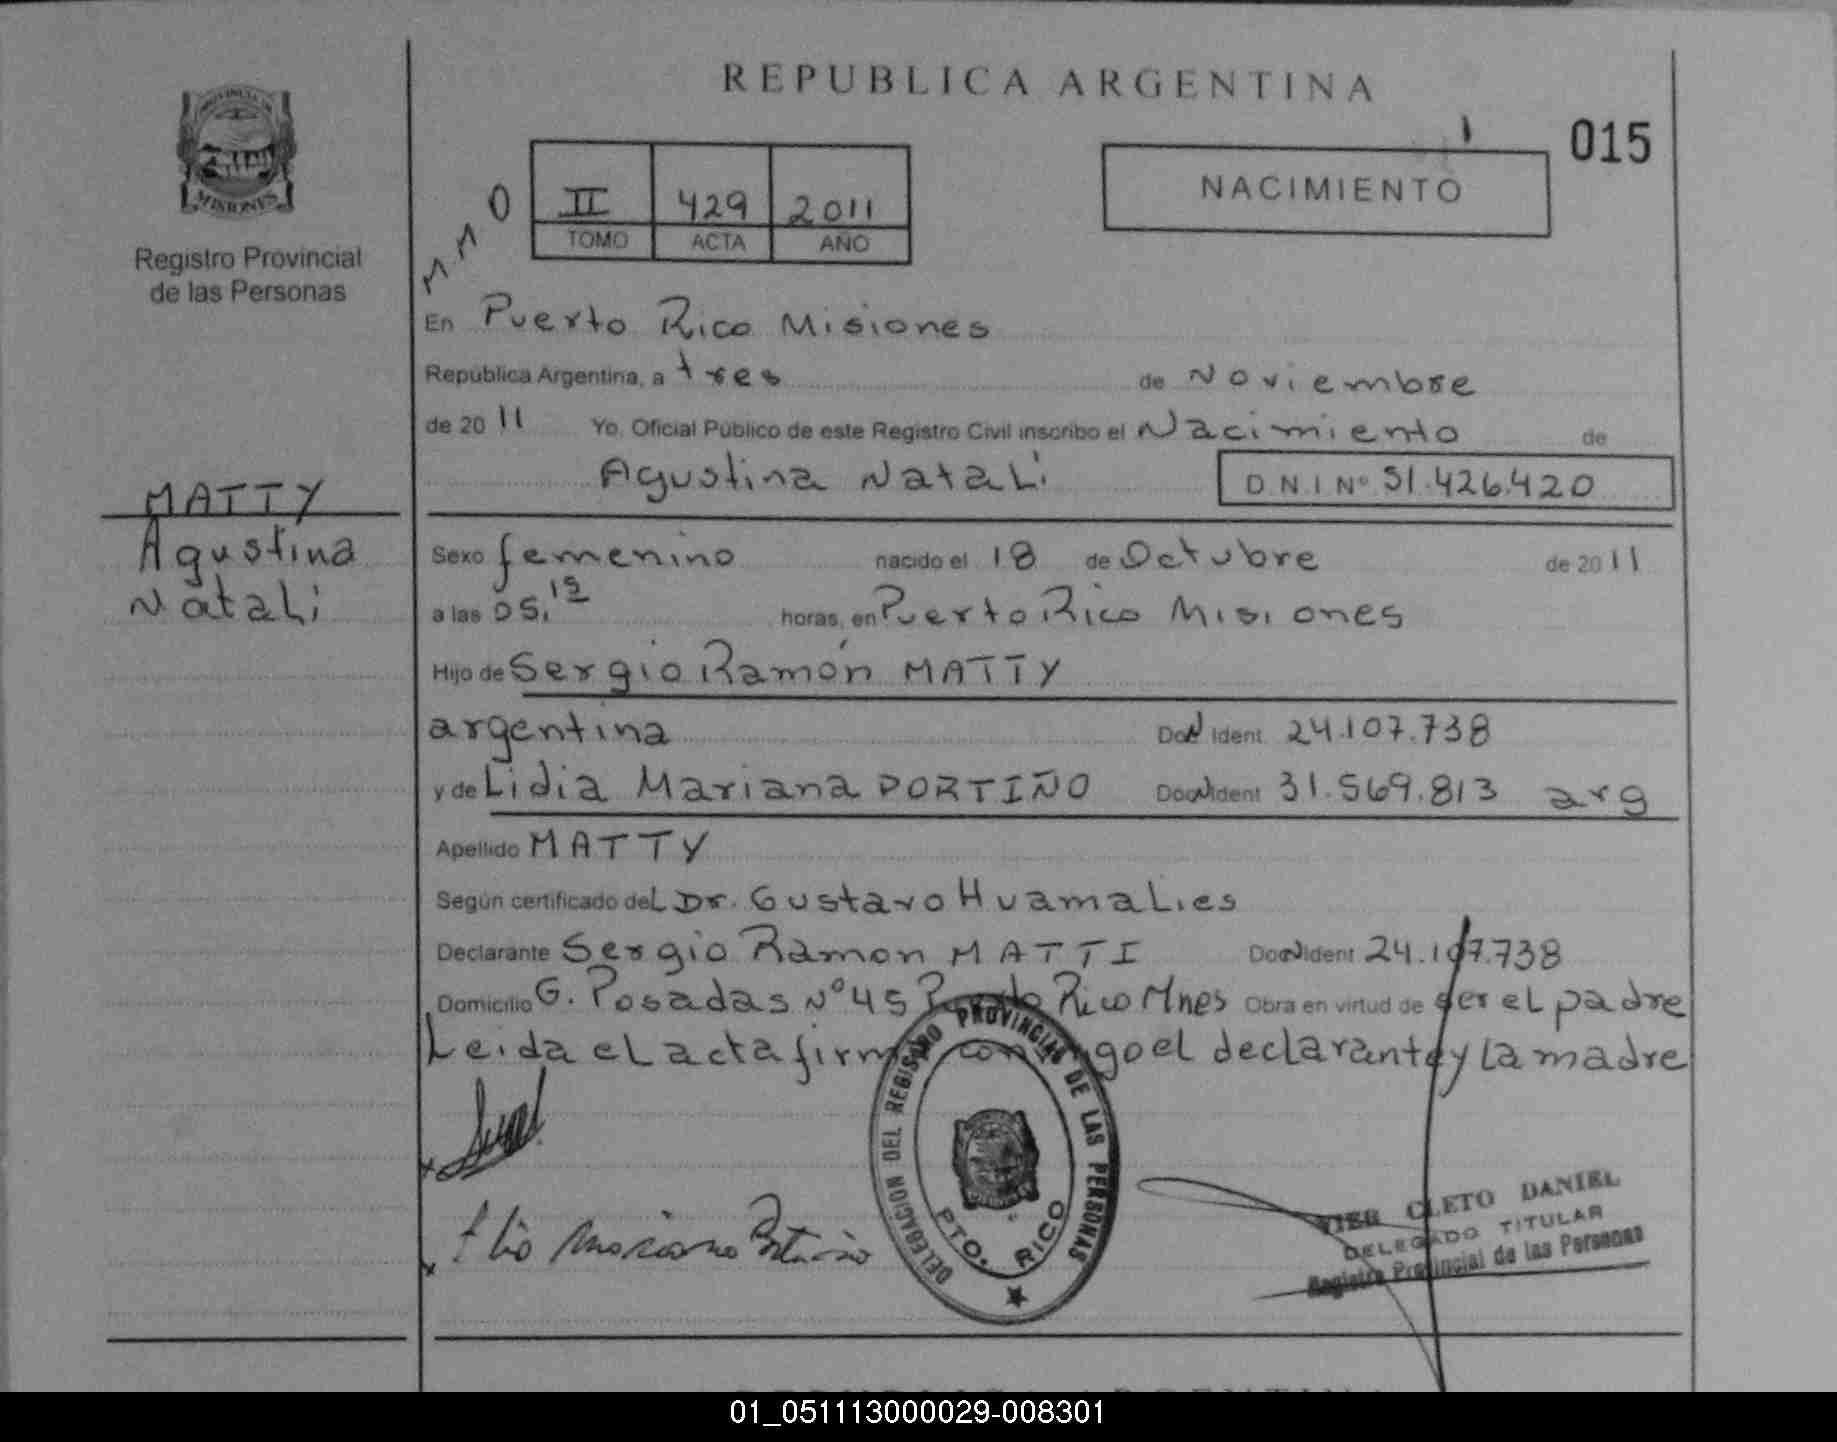 REPUBLICA ARGENTINA
015
PROVINCIA DE
MISIONES
Registro Provincial
de las Personas
II 429 2011
TOMO ACTA AÑO
NACIMIENTO
En Puerto Rico Misiones
República Argentina, a tres de Noviembre
de 2011 Yo, Oficial Público de este Registro Civil inscribo el Nacimiento de
Agustina Natali D.N.I Nº 51.426.420
MATTY
Agustina
Natali
Sexo femenino nacido el 18 de Octubre de 2011
a las 05,15 horas, en Puerto Rico Misiones
Hijo de Sergio Ramón MATTY
argentina Doc Ident 24.107.738
y de Lidia Mariana PORTIÑO Doc Ident 31.569.813 arg
Apellido MATTY
Según certificado del Dr. Gustavo Huamalies
Declarante Sergio Ramon MATTI Doc Ident 24.107.738
Domicilio G. Posadas Nº 45 Puerto Rico Mnes Obra en virtud de ser el padre
Leida el acta firma conmigo el declarante y la madre
DELEGACION DEL REGISTRO PROVINCIAL DE LAS PERSONAS
PTO. RICO
CLETO DANIEL
DELEGADO TITULAR
Registro Provincial de las Personas
01_051113000029-008301